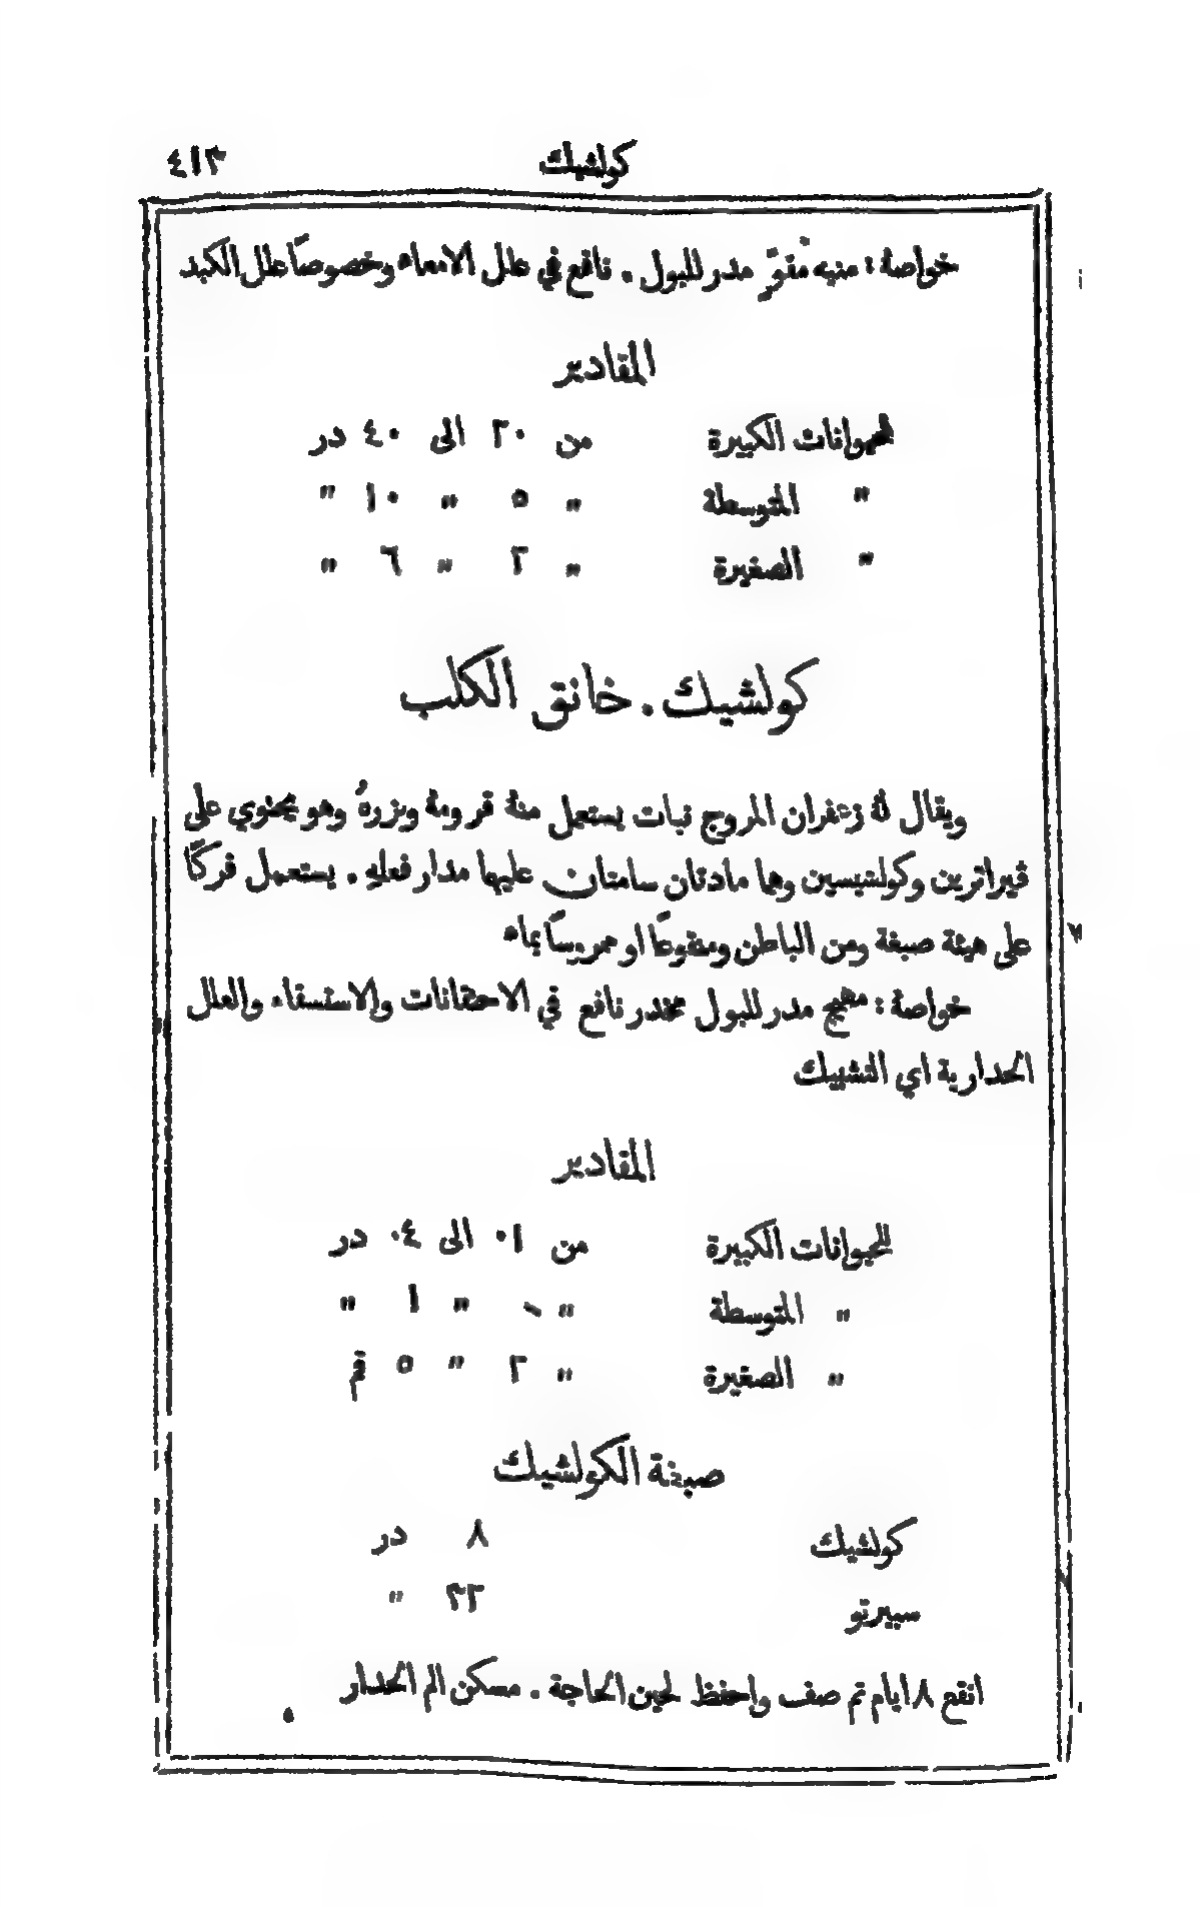 كولشيك ٤١٣
خواصهُ : منبه مُقوٍّ مدر للبول . نافع في علل الامعاء وخصوصاً علل الكبد
المقادير
للحيوانات الكبيرة من ٢٠ الى ٤٠ در
" المتوسطة " ٥ " ١٠ "
" الصغيرة " ٢ " ٦ "
كولشيك . خانق الكلب
ويقال لهُ زعفران المروج نبات يستعمل منهُ قرومهُ وبزورهُ وهو يحتوي على
فيراترين وكولشيسين وهما مادتان سامتان عليهما مدار فعله . يستعمل فركاً
على هيئة صبغة ومن الباطن ومنقوعاً او ممروساً بماء
خواصهُ : مهيج مدر للبول مخدر نافع في الاحتقانات والاستسقاء والعلل
الحدارية اي التشبيك
المقادير
للحيوانات الكبيرة من ٠١ الى ٠٤ در
" المتوسطة " " ١ "
" الصغيرة " ٢ " ٥ قم
صبغة الكولشيك
كولشيك ٨ در
سبيرتو ٣٢ "
انقع ٨ ايام ثم صف واحفظ لحين الحاجة . مسكن الم الحدار